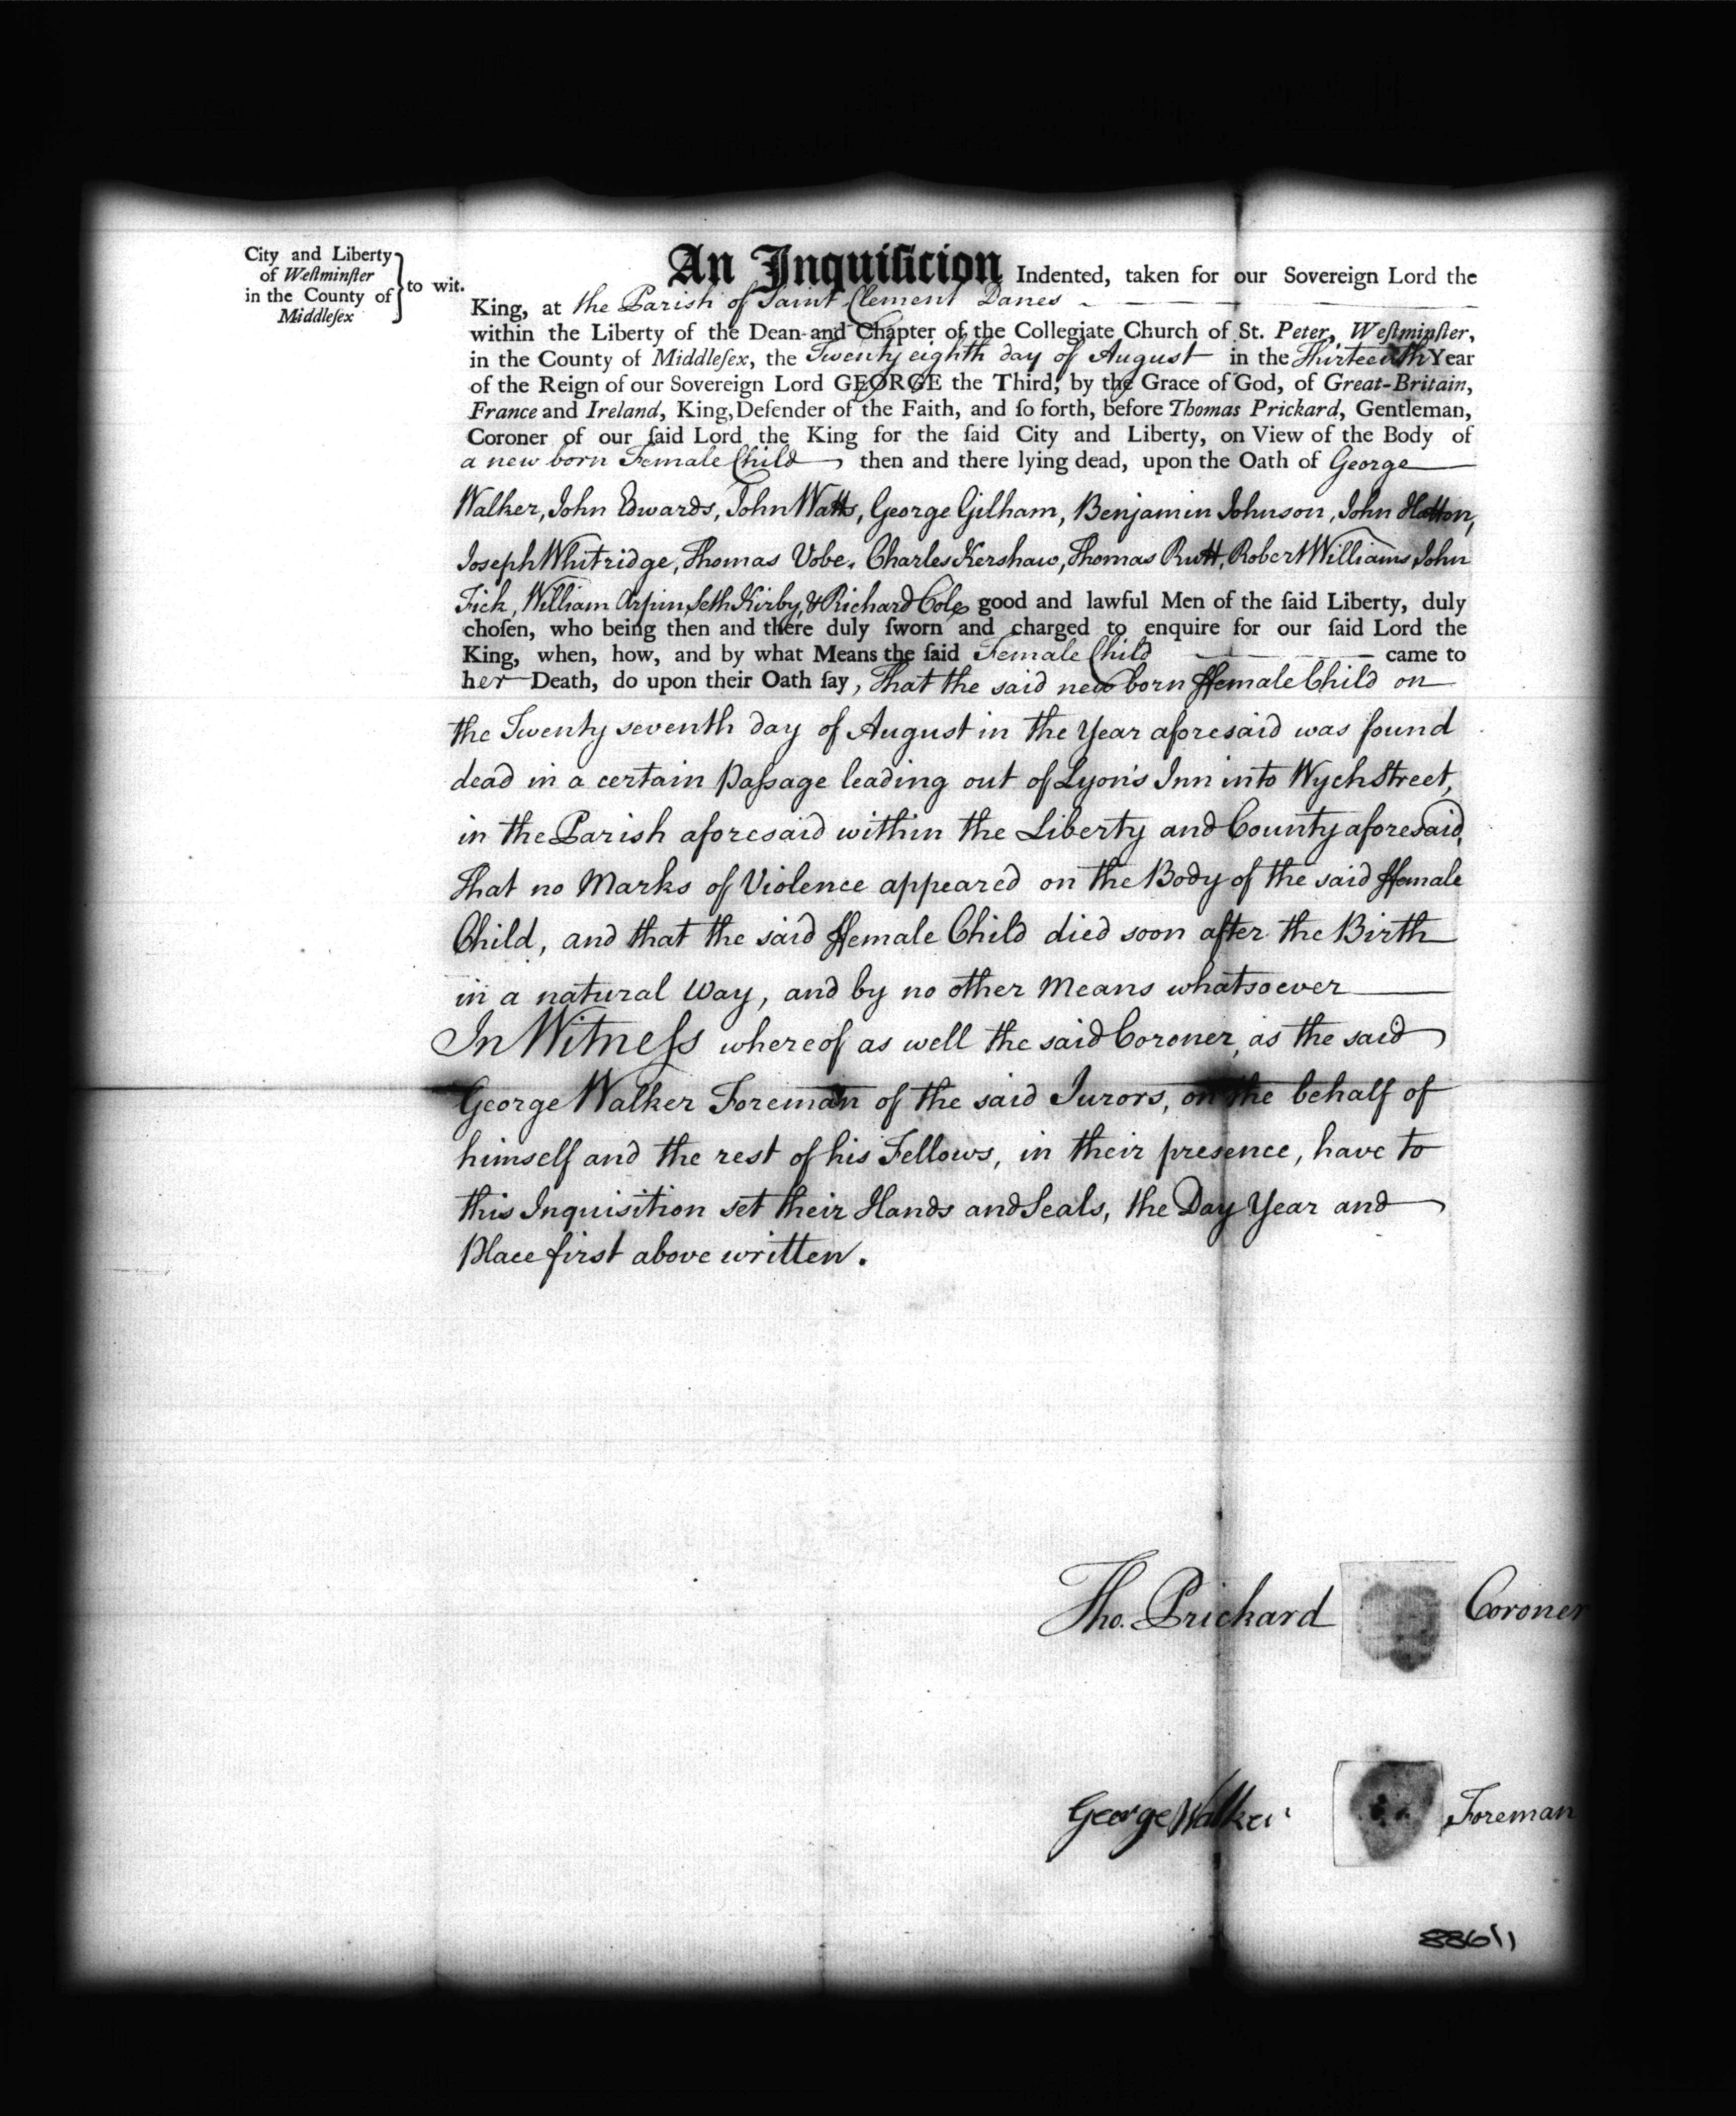 City and Liberty
of Weſtminſter
in the County of
Middleſex
to wit.
An Inquiſicion Indented, taken for our Sovereign Lord the
King, at the Parish of Saint Clement Danes
within the Liberty of the Dean and Chapter of the Collegiate Church of St. Peter, Weſtminſter,
in the County of Middleſex, the Twenty eighth day of August in the Thirteenth Year
of the Reign of our Sovereign Lord GEORGE the Third, by the Grace of God, of Great-Britain,
France and Ireland, King, Defender of the Faith, and ſo forth, before Thomas Prickard, Gentleman,
Coroner of our ſaid Lord the King for the ſaid City and Liberty, on View of the Body of
a new born Female Child then and there lying dead, upon the Oath of George
Walker, John Edwards, John Watts, George Gilham, Benjamin Johnson, John Hatton,
Joseph Whitridge, Thomas Vobe, Charles Kershaw, Thomas Rutt, Robert Williams, John
Fick, William Arpin, Seth Kirby, & Richard Cole good and lawful Men of the ſaid Liberty, duly
choſen, who being then and there duly ſworn and charged to enquire for our ſaid Lord the
King, when, how, and by what Means the ſaid Female Child came to
her Death, do upon their Oath ſay, That the said new born ffemale Child on
the Twenty seventh day of August in the Year aforesaid was found
dead in a certain Paſsage leading out of Lyon's Inn into Wych Street,
in the Parish aforesaid within the Liberty and County aforesaid,
That no Marks of Violence appeared on the Body of the said ffemale
Child, and that the said ffemale Child died soon after the Birth
in a natural Way, and by no other Means whatsoever
In Witneſs whereof as well the said Coroner, as the said
George Walker Foreman of the said Jurors, on the behalf of
himself and the rest of his Fellows, in their presence, have to
this Inquisition set their Hands and Seals, the Day Year and
Place first above written.
Tho. Prickard Coroner
George Walker Foreman